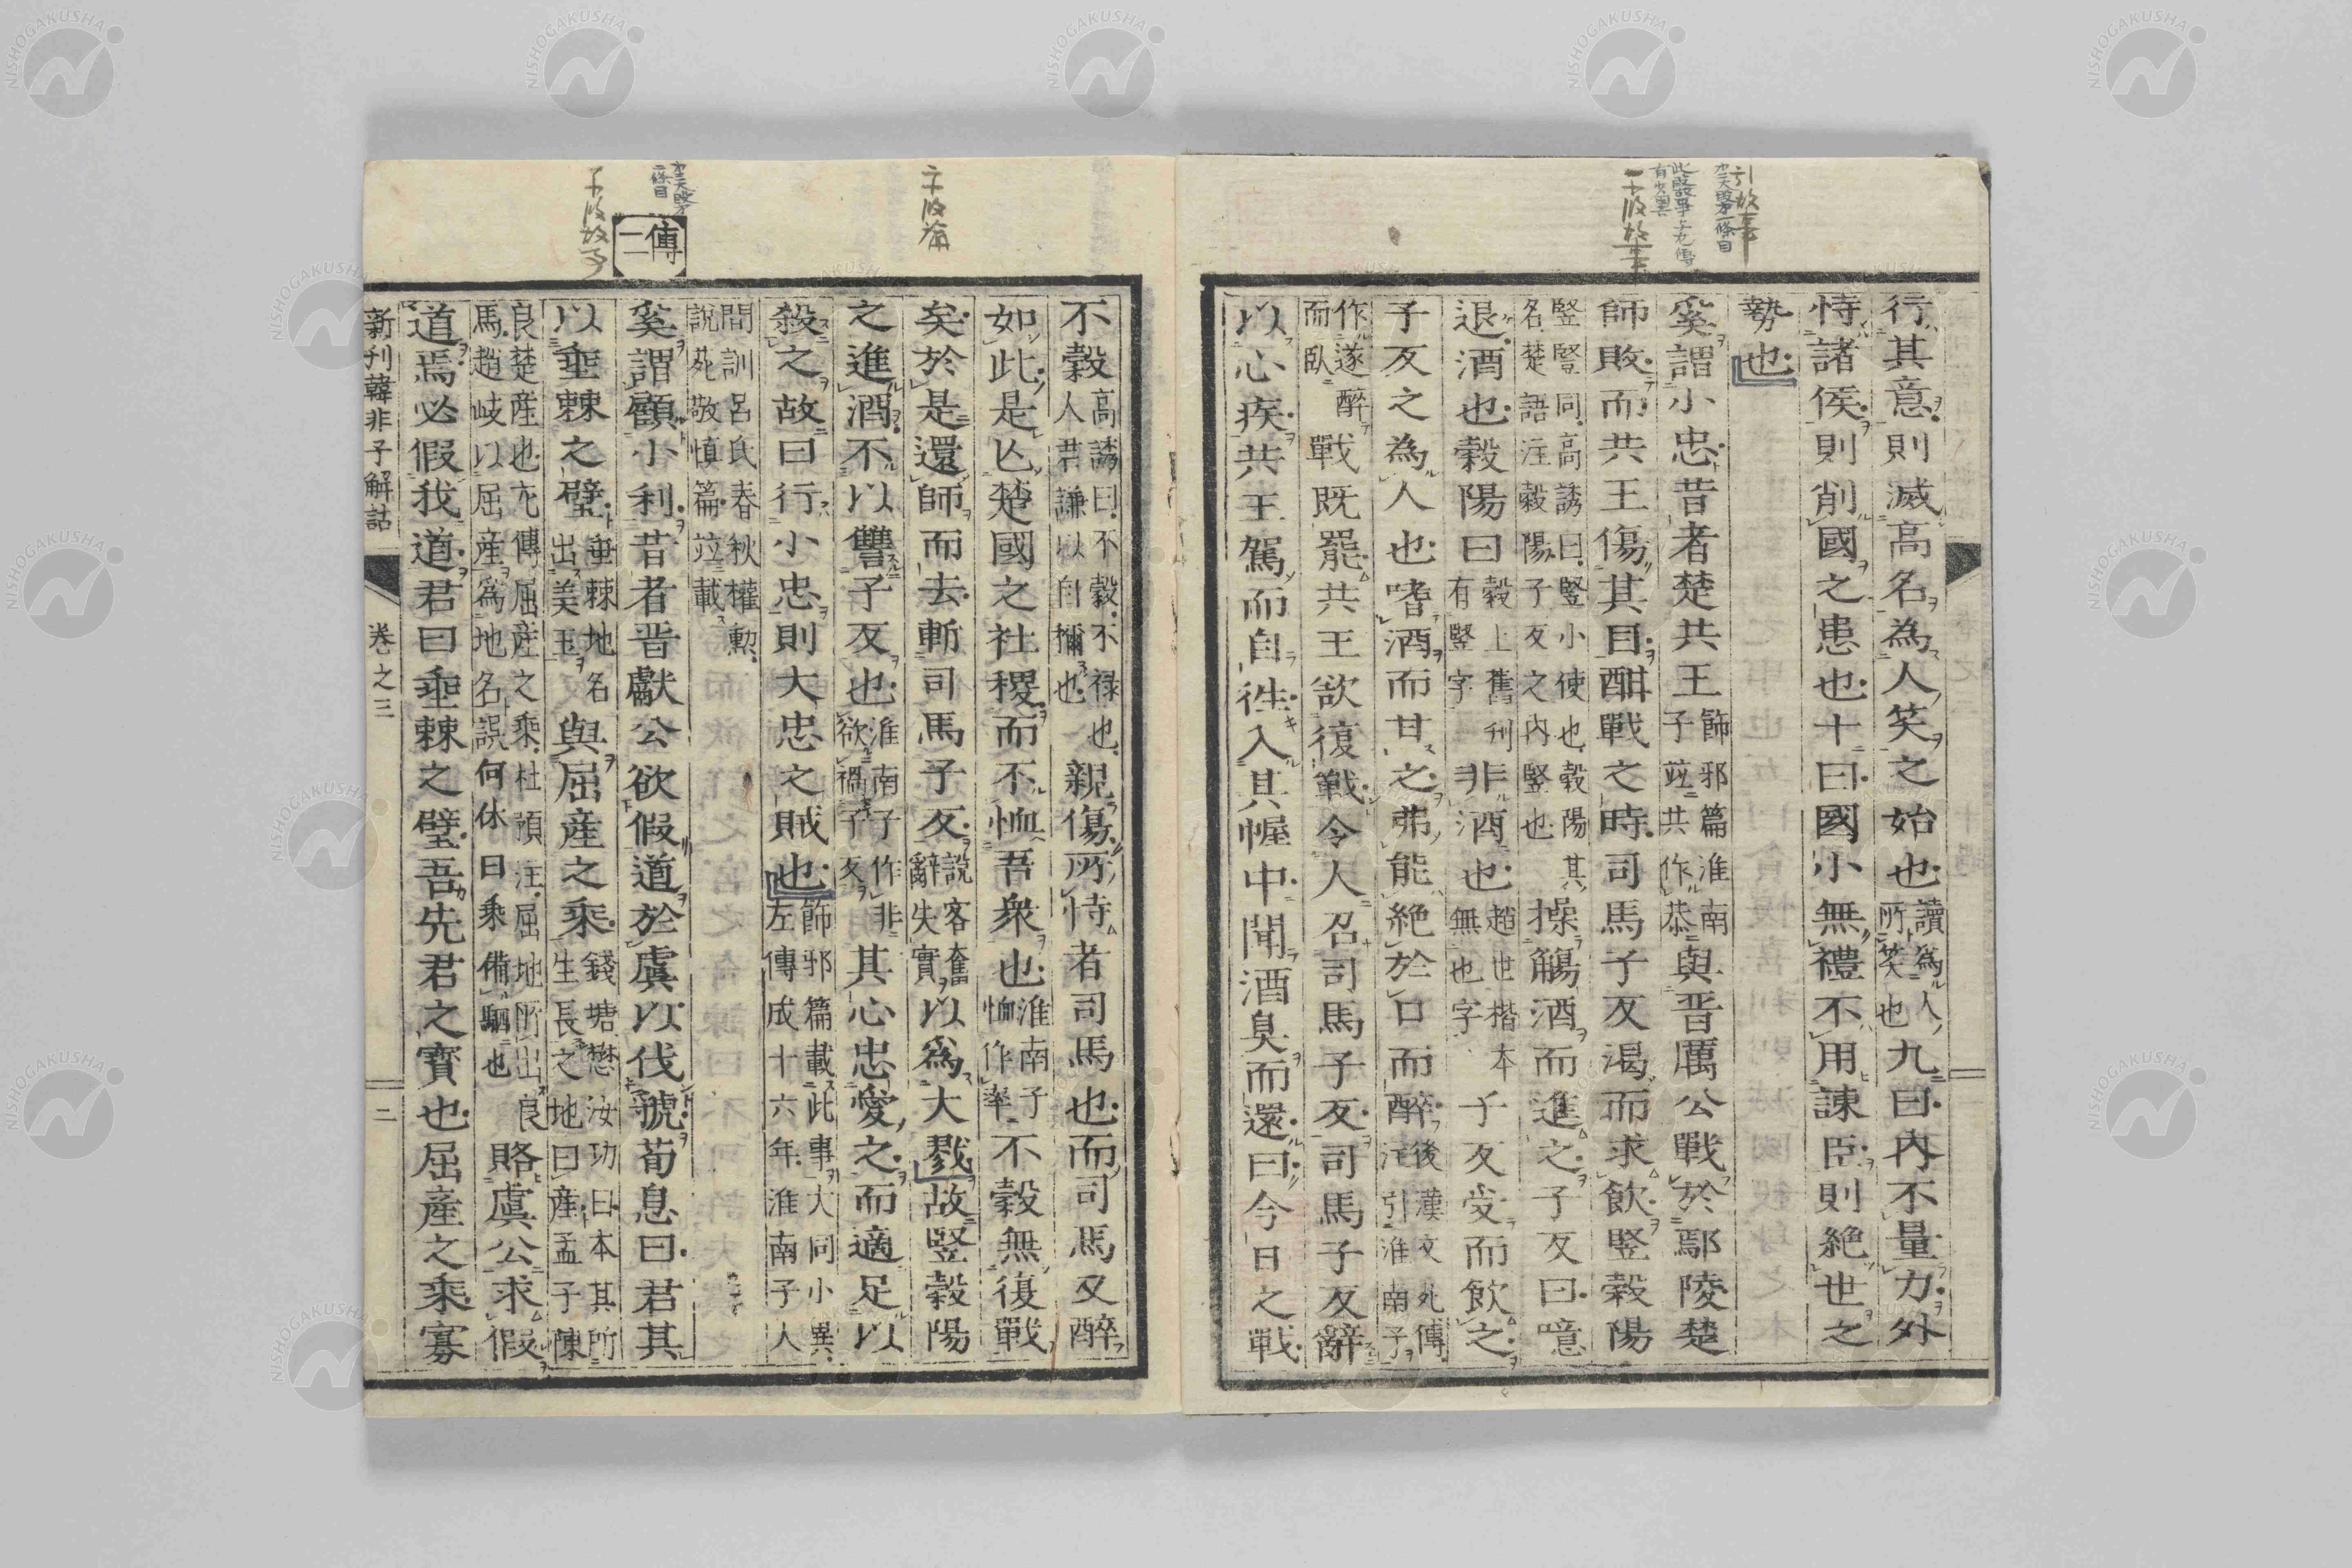 行其意則滅高名為人笑之始也讀為人所笑也九曰內不量力外
恃諸侯則削國之患也十曰國小無禮不用諫臣則絶世之
勢也
奚謂小忠昔者楚共王飾邪篇淮南子竝共作恭與晋厲公戰於鄢陵楚
師敗而共王傷其目酣戰之時司馬子反渴而求飲竪穀陽
竪豎同高誘曰竪小使也穀陽其名楚語注穀陽子反之内竪也操觴酒而進之子反曰噫
退酒也穀陽曰穀上舊刊有竪字非酒也趙世楷本無也字子反受而飲之
子反之為人也嗜酒而甘之弗能絶於口而醉後漢文苑傳注引淮南子
作遂醉而臥戰既罷共王欲復戰令人召司馬子反司馬子反辭
以心疾共王駕而自往入其幄中聞酒臭而還曰今日之戰
引故事
才二大段才一條目
此段故事
有少異
一十段故事
不穀高誘曰不穀不禄也人君謙以自襧也親傷所恃者司馬也而司馬又醉
如此是亾楚國之社稷而不恤吾衆也淮南子恤作率不穀無復戰
矣於是還師而去斬司馬子反說客奮辭失實以為大戮故竪穀陽
之進酒不以讐子反也淮南子作非欲禍子反其心忠愛之而適足以
殺之故曰行小忠則大忠之賊也飾邪篇載此事大同小異左傳成十六年淮南子人
間訓呂氏春秋權勲說苑敬慎篇竝載
奚謂顧小利昔者晋獻公欲假道於虞以伐虢荀息曰君其
以垂棘之璧垂棘地名出美玉與屈產之乘錢塘懋汝功曰本其所生長之地曰產孟子陳
良楚産也左傳屈産之乘杜預注屈地所出良馬趙岐以屈産為地名誤何休曰乘備駟也賂虞公求假
道焉必假我道君曰垂棘之璧吾先君之寳也屈産之乘寡
傳二
才二大段才二條目
新刊韓非子解詁
卷之三
二
NISHOGAKUSHA